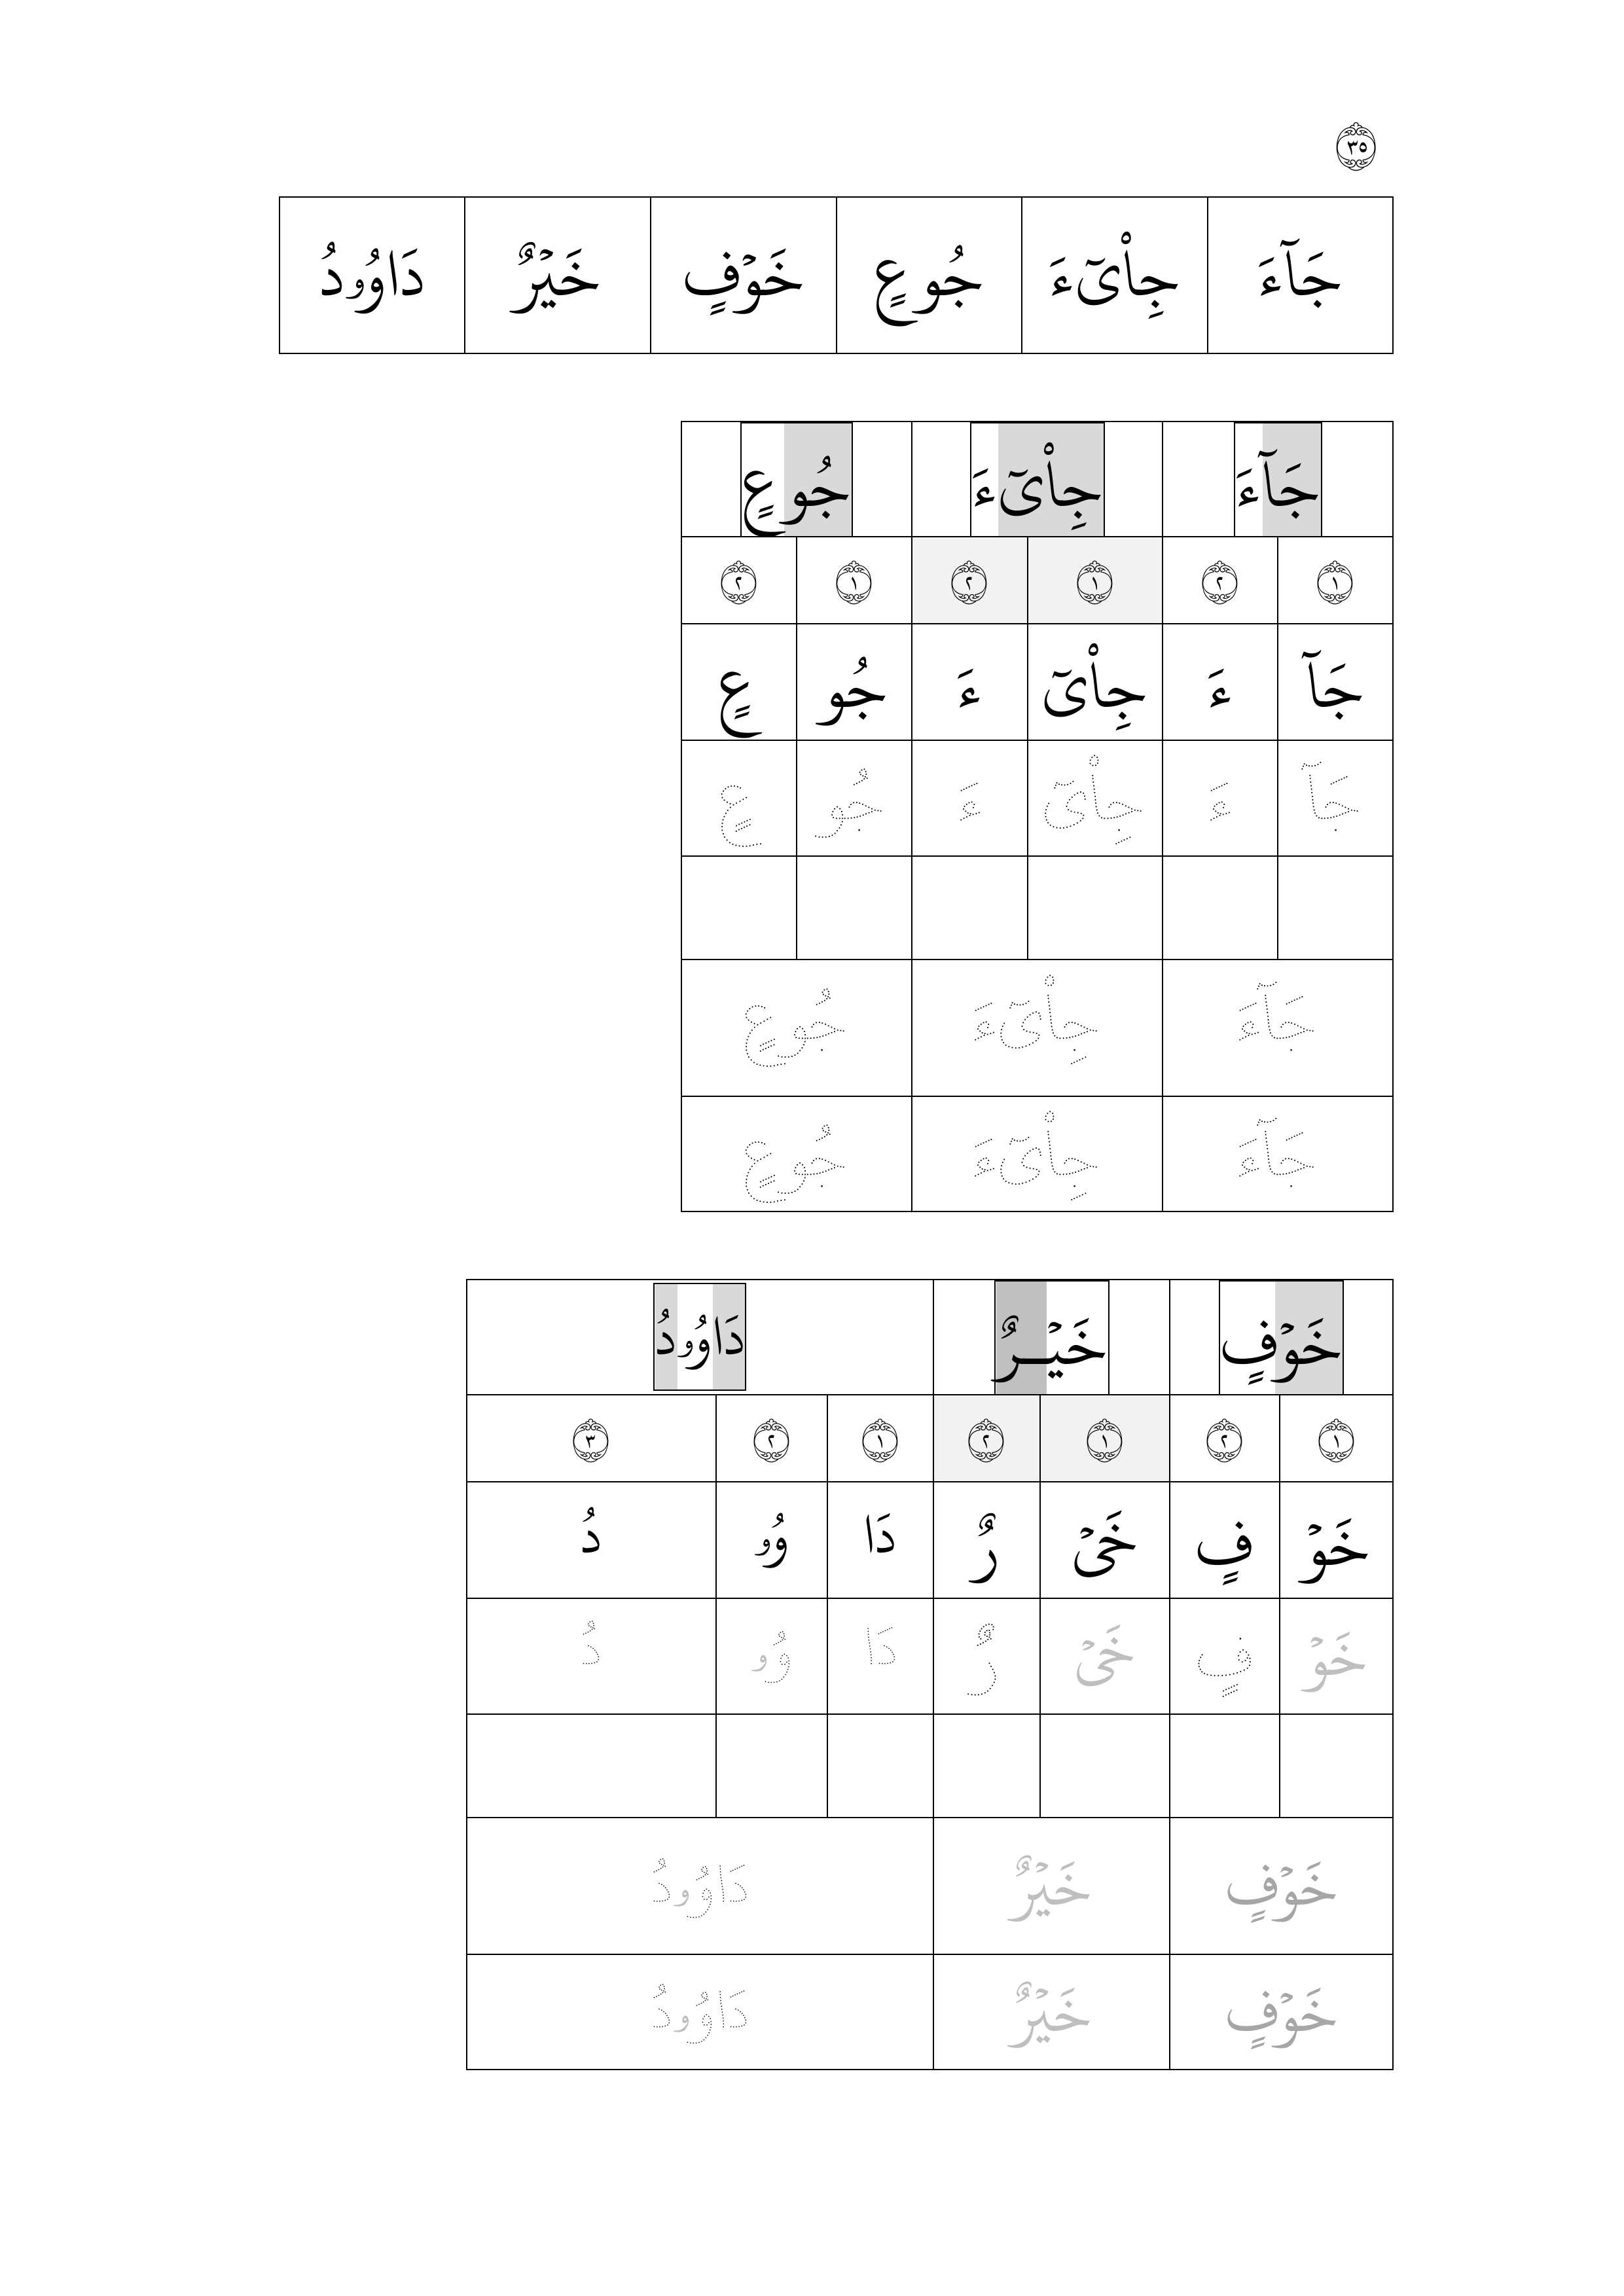 ٣٥
جَآءَ جِا۟ىٓءَ جُوعٍ خَوۡفٍ خَيۡرٌ دَاوُۥدُ
جَآءَ جِا۟ىٓءَ جُوعٍ
١ ٢ ١ ٢ ١ ٢
جَآ ءَ جِا۟ىٓ ءَ جُو عٍ
جَآ ءَ جِا۟ىٓ ءَ جُو عٍ
جَآءَ جِا۟ىٓءَ جُوعٍ
جَآءَ جِا۟ىٓءَ جُوعٍ
خَوۡفٍ خَيۡـرٌ دَاوُۥدُ
١ ٢ ١ ٢ ١ ٢ ٣
خَوۡ فٍ خَىۡ رٌ دَا وُۥ دُ
خَوۡ فٍ خَىۡ رٌ دَا وُۥ دُ
خَوۡفٍ خَيۡرٌ دَاوُۥدُ
خَوۡفٍ خَيۡرٌ دَاوُۥدُ